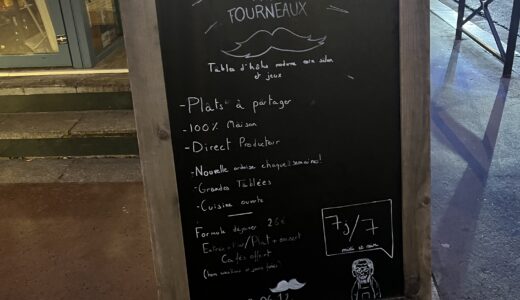 TOURNEAUX
Table d'hôtes moderne coin salon
et jeux
-Plats à partager
-100% Maison
-Direct Producteur
-Nouvelle ardoise chaque semaine!
-Grandes Tablées
-Cuisine ouverte
Formule déjeuner 26€
Entrée + Plat + dessert
Cafés offert
7j/7
midi et soir